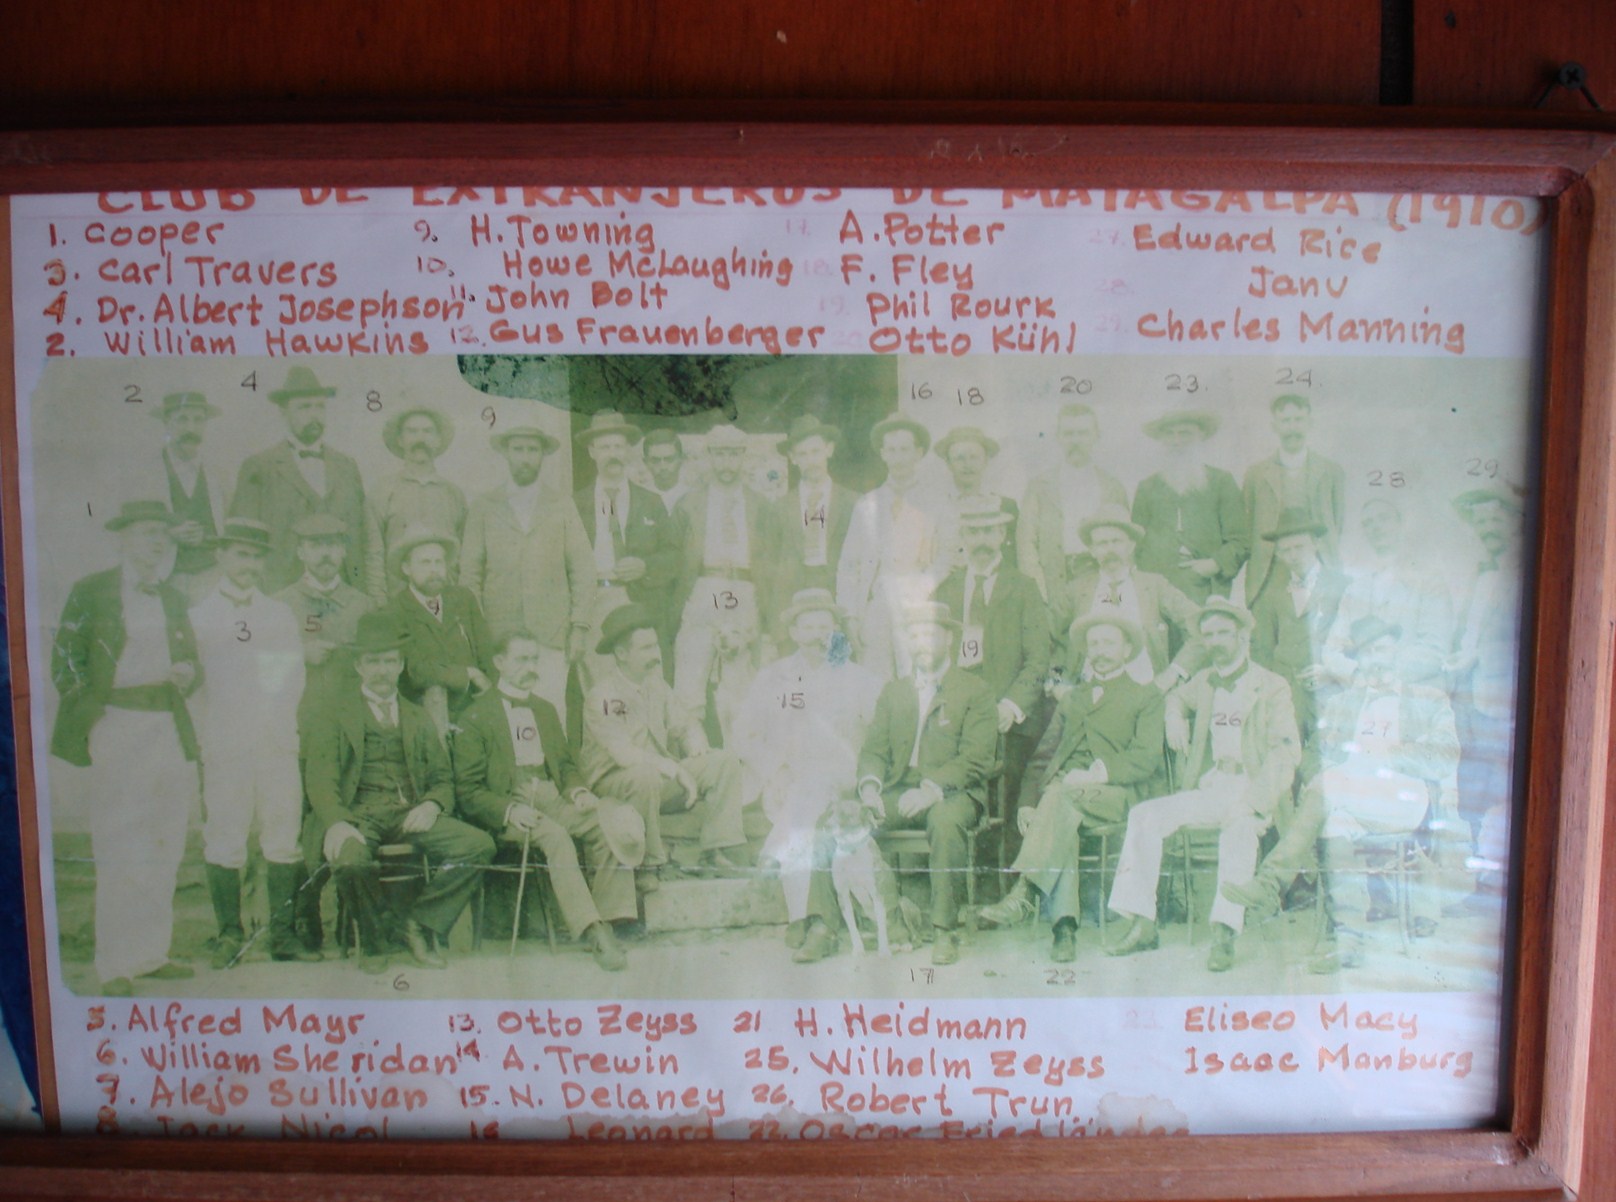 CLUB DE EXTRANJEROS DE MATAGALPA (1910)
1. Cooper 9. H. Towning 17. A. Potter 27. Edward Rice
3. Carl Travers 10. Howe McLaughing 18. F. Fley 28. Janv
4. Dr. Albert Josephson 11. John Bolt 19. Phil Rourk 29. Charles Manning
2. William Hawkins 12. Gus Frauenberger 20 Otto Kühl
2 4 8 9 16 18 20 23. 24.
28 29
1 11 14
3 5 9 13 21
12 15 19
10 26 27
6 17 22
5. Alfred Mayr 13. Otto Zeyss 21 H. Heidmann 23 Eliseo Macy
6. William Sheridan 14 A. Trewin 25. Wilhelm Zeyss Isaac Manburg
7. Alejo Sullivan 15. N. Delaney 26. Robert Trun
8 Jack Nicol 16 Leonard 22. Oscar Friedländer